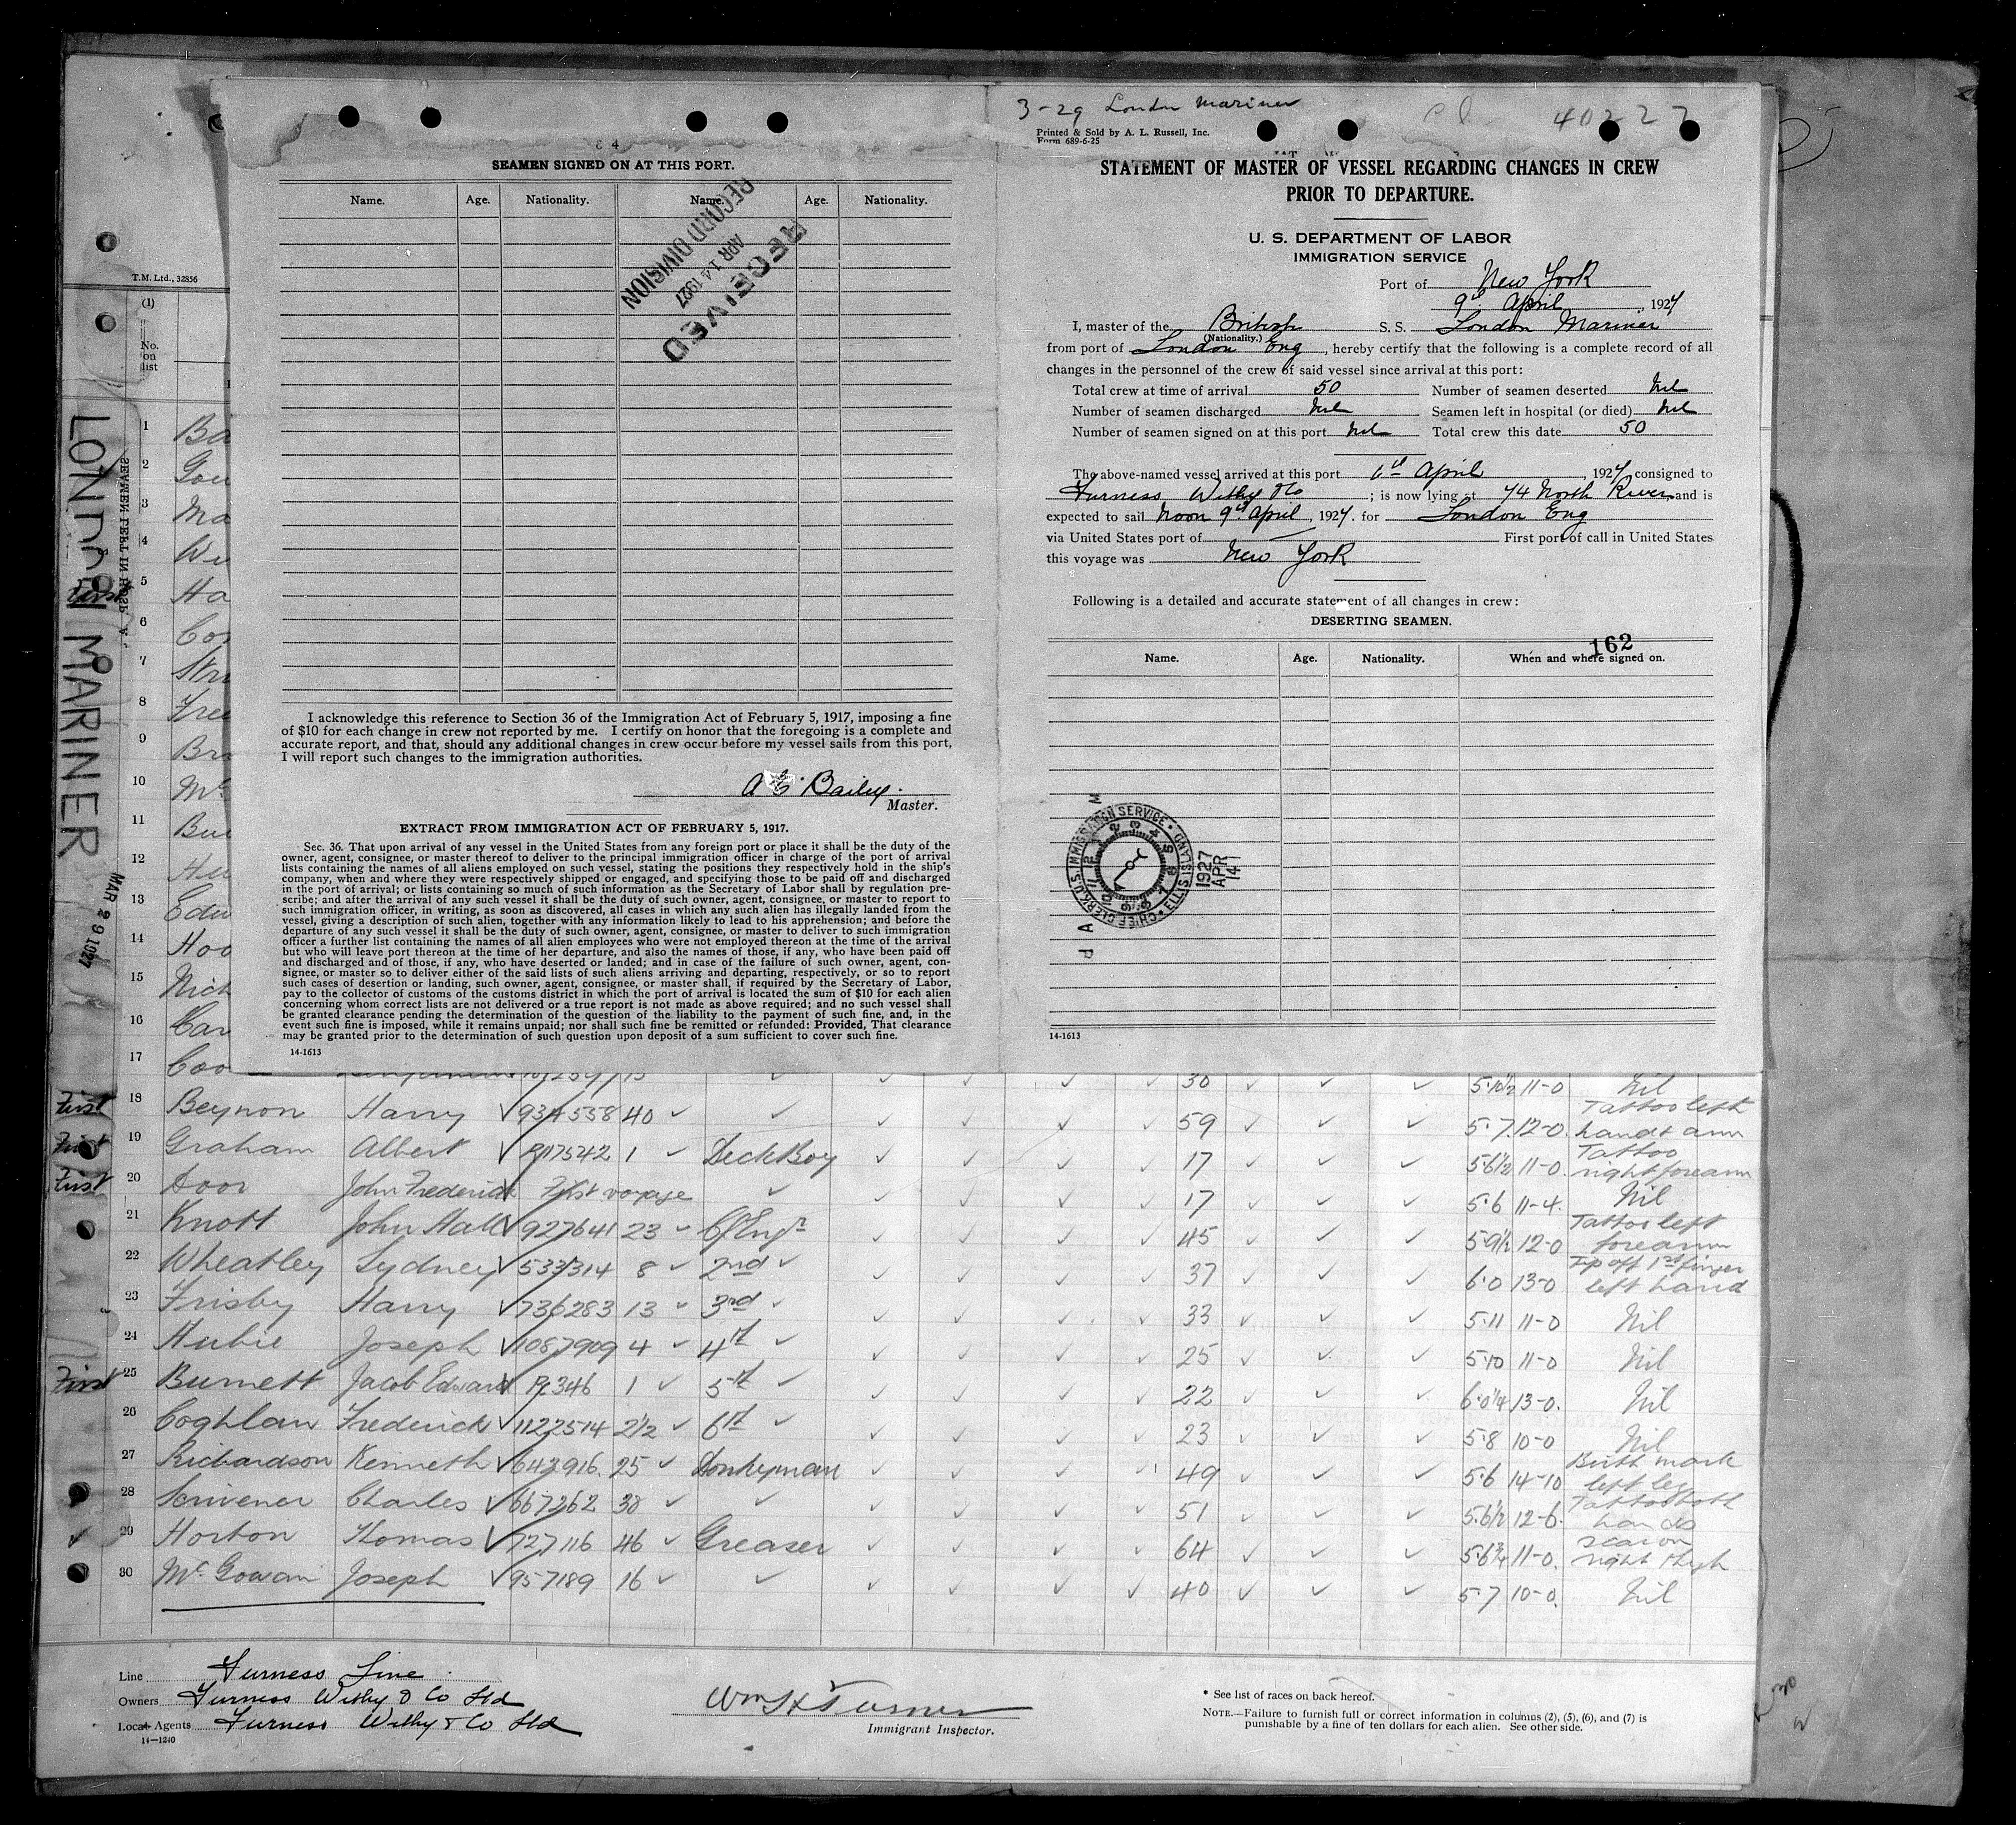 3-29 London Mariner
40227
Printed & Sold by A. L. Russell, Inc.
Form 689-6-25
SEAMEN SIGNED ON AT THIS PORT.
Name. Age. Nationality. Name. Age. Nationality.
RECEIVED
APR 14 1927
RECORD DIVISION
I acknowledge this reference to Section 36 of the Immigration Act of February 5, 1917, imposing a fine
of $10 for each change in crew not reported by me. I certify on honor that the foregoing is a complete and
accurate report, and that, should any additional changes in crew occur before my vessel sails from this port,
I will report such changes to the immigration authorities.
Bailey.
Master.
EXTRACT FROM IMMIGRATION ACT OF FEBRUARY 5, 1917.
Sec. 36. That upon arrival of any vessel in the United States from any foreign port or place it shall be the duty of the
owner, agent, consignee, or master thereof to deliver to the principal immigration officer in charge of the port of arrival
lists containing the names of all aliens employed on such vessel, stating the positions they respectively hold in the ship's
company, when and where they were respectively shipped or engaged, and specifying those to be paid off and discharged
in the port of arrival; or lists containing so much of such information as the Secretary of Labor shall by regulation pre-
scribe; and after the arrival of any such vessel it shall be the duty of such owner, agent, consignee, or master to report to
such immigration officer, in writing, as soon as discovered, all cases in which any such alien has illegally landed from the
vessel, giving a description of such alien, together with any information likely to lead to his apprehension; and before the
departure of any such vessel it shall be the duty of such owner, agent, consignee, or master to deliver to such immigration
officer a further list containing the names of all alien employees who were not employed thereon at the time of the arrival
but who will leave port thereon at the time of her departure, and also the names of those, if any, who have been paid off
and discharged and of those, if any, who have deserted or landed; and in case of the failure of such owner, agent, con-
signee, or master so to deliver either of the said lists of such aliens arriving and departing, respectively, or so to report
such cases of desertion or landing, such owner, agent, consignee, or master shall, if required by the Secretary of Labor,
pay to the collector of customs of the customs district in which the port of arrival is located the sum of $10 for each alien
concerning whom correct lists are not delivered or a true report is not made as above required; and no such vessel shall
be granted clearance pending the determination of the question of the liability to the payment of such fine, and, in the
event such fine is imposed, while it remains unpaid; nor shall such fine be remitted or refunded: Provided, That clearance
may be granted prior to the determination of such question upon deposit of a sum sufficient to cover such fine.
14-1613
STATEMENT OF MASTER OF VESSEL REGARDING CHANGES IN CREW
PRIOR TO DEPARTURE.
U. S. DEPARTMENT OF LABOR
IMMIGRATION SERVICE
Port of New York
9th April, 1927
I, master of the British S. S. London Mariner
(Nationality.)
from port of London Eng, hereby certify that the following is a complete record of all
changes in the personnel of the crew of said vessel since arrival at this port:
Total crew at time of arrival 50 Number of seamen deserted Nil
Number of seamen discharged Nil Seamen left in hospital (or died) Nil
Number of seamen signed on at this port Nil Total crew this date 50
The above-named vessel arrived at this port April, 1927, consigned to
Furness Withy & Co; is now lying at 74 North River, and is
expected to sail Noon 9th April, 1927. for London Eng
via United States port of First port of call in United States
this voyage was New York
Following is a detailed and accurate statement of all changes in crew:
DESERTING SEAMEN.
162
Name. Age. Nationality. When and where signed on.
CHIEF CLERK U.S. IMMIGRATION SERVICE • ELLIS ISLAND •
1927 APR 14
14-1613
T.M. Ltd., 32856
(1)
No. on list
LONDON MARINER
MAR 29 1927
1 Ba
2 Gou
3 Ma
4 Wi
First 5 Ha
6 Cor
7 Stri
8 Free
9 Bro
10 Mc
11 Bur
12
13 Edw
14 Hoo
15 Nich
16 Car
17 Coo 30 5·10½ 11-0 Nil
First 18 Beynon Harry 934558 40 59 5·7 12-0 Tattoo left hand & arm
First 19 Graham Albert 1 Deck Boy 17 5·6½ 11-0 Tattoo right forearm
First 20 Door John Frederick First voyage 17 5·6 11-4 Nil
21 Knott John Hall 927641 23 Cf Engr 45 5·9½ 12-0 Tattoo left forearm
22 Wheatley Sydney 533314 8 2nd 37 6·0 13-0 Tip off 1st finger left hand
23 Frisby Harry 736283 13 3rd 33 5·11 11-0 Nil
24 Hubie Joseph 1087909 4 4th 25 5·10 11-0 Nil
First 25 Burnett Jacob Edward 1 5th 22 6·0¼ 13-0 Nil
26 Coghlan Frederick 1122514 2½ 6th 23 5·8 10-0 Nil
27 Richardson Kenneth 643916 25 Donkeyman 49 5·6 14-10 Birth mark left leg
28 Scrivener Charles 667262 38 51 5·6½ 12-6 Tattoo both hands
29 Horton Thomas 727116 46 Greaser 64 5·6¾ 11-0 scar on right thigh
30 McGowan Joseph 957189 16 40 5·7 10-0 Nil
Line Furness Line
Owners Furness Withy & Co Ltd
Local Agents Furness Withy & Co Ltd
14-1240
Wm H Turner
Immigrant Inspector.
* See list of races on back hereof.
NOTE.—Failure to furnish full or correct information in columns (2), (5), (6), and (7) is
punishable by a fine of ten dollars for each alien. See other side.